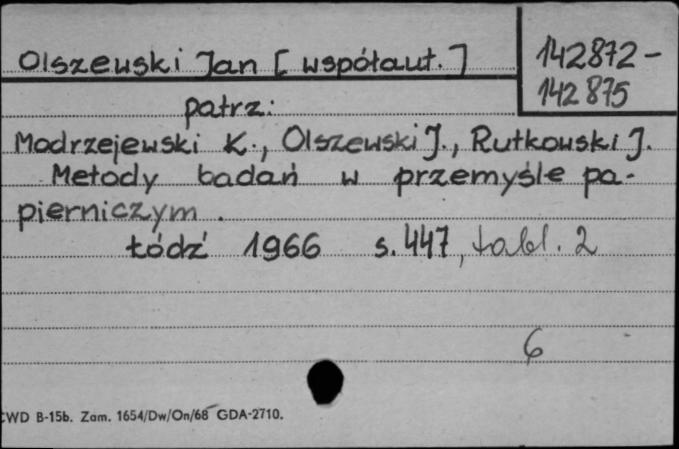 Olszewski Jan [współaut.]
142872-
142875
patrz:
Modrzejewski K., Olszewski J., Rutkowski J.
Metody badań w przemyśle pa-
pierniczym.
Łódź 1966 s. 447, tabl. 2
6
CWD B-15b. Zam. 1654/Dw/On/68 GDA-2710.